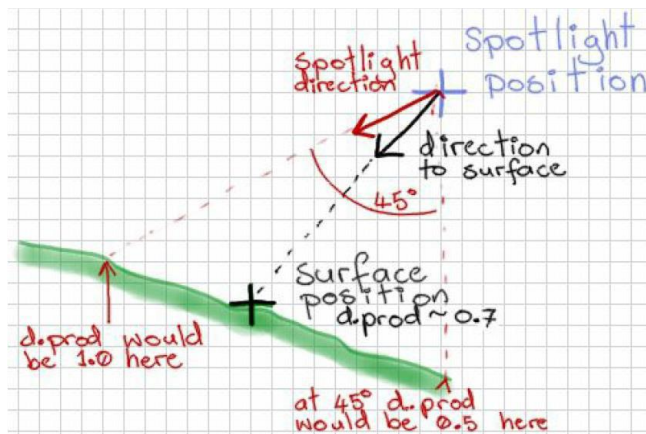 Spotlight
position
spotlight
direction
direction
to surface
45°
Surface
position
d.prod ~ 0.7
d.prod would
be 1.0 here
at 45° d.prod
would be 0.5 here